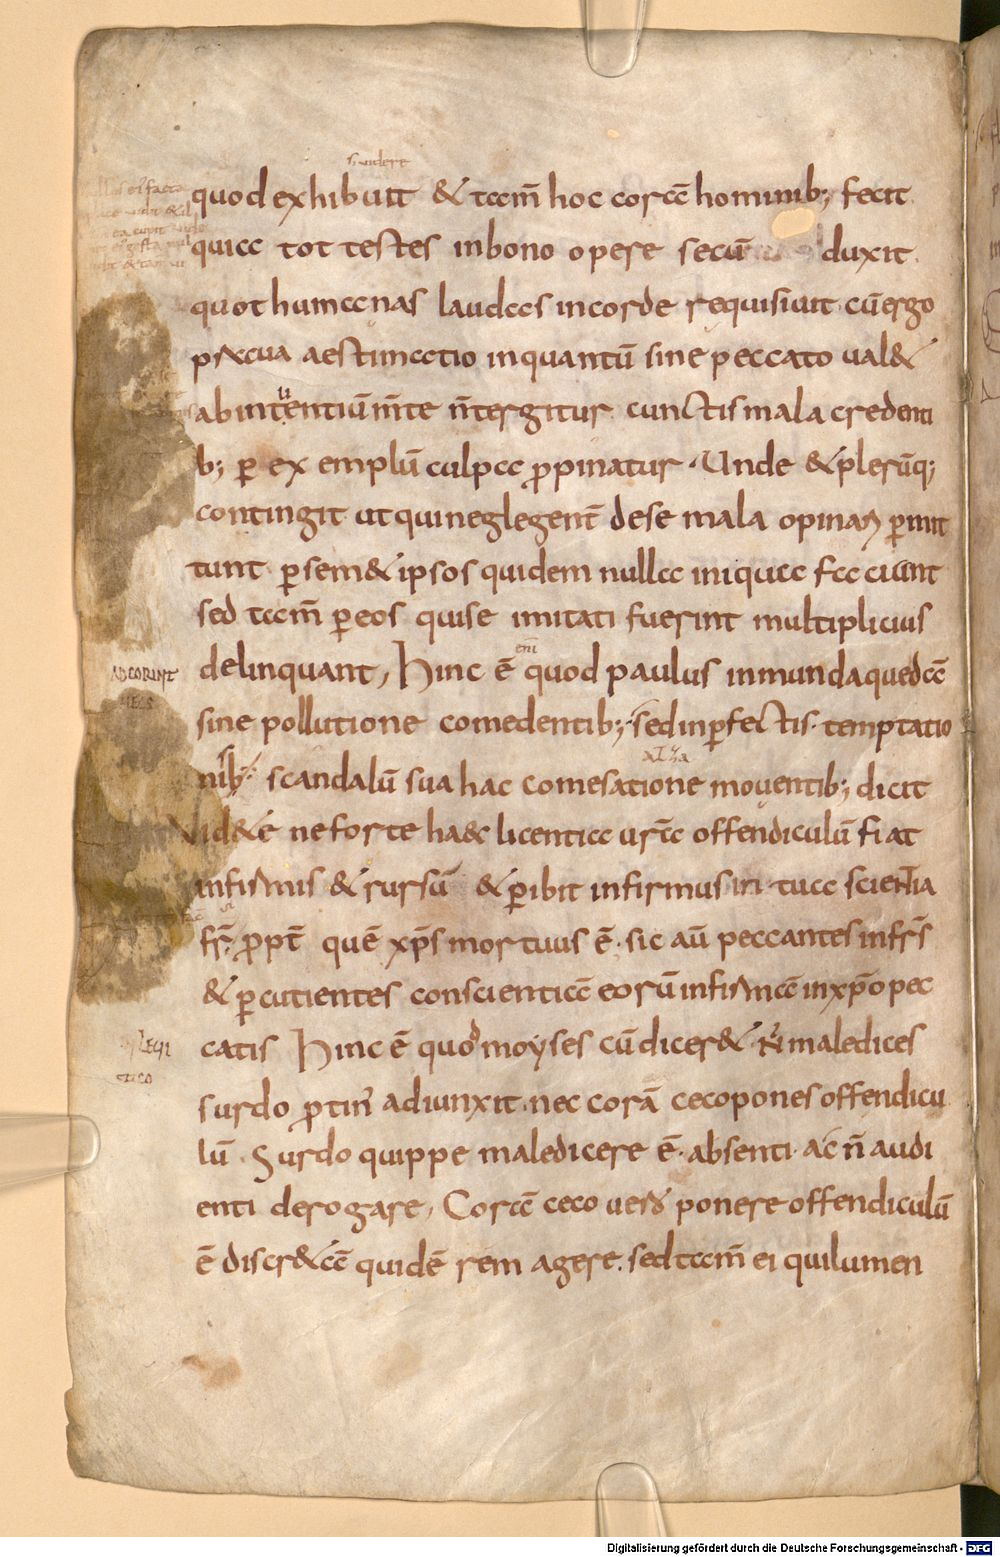 s uidere
quod exhibuit & tam̄ hoc corā hominib; fecit
quia tot testes in bono opere secū duxit.
quot humanas laudes in corde requisiuit. cū ergo
praua aestimatio inquantū sine peccato ual&
ab intuentiū m̄te n̄ tergitur cunctis mala credenti
b; ꝑ exemplū culpa ꝓpinatur. Unde & plerūq;
contingit ut qui neglegent̄ de se mala opinari ꝑmit
tunt ꝑ sem& ipsos quidem nulla iniqua faciunt
sed tam̄ ꝑ eos qui se imitati fuerint multiplicius
eni
delinquant, Hinc ē quod paulus inmunda quedā
AD CORINT
sine pollutione comedentib; sed inꝑfectis temptatio
nib; scandalū sua hac comesatione mouentib; dicit
Uid&e ne forte haec licentia urā offendiculū fiat
infirmis & rursū & ꝑibit infirmus in tua scientia
fr̄ ꝓpt̄ quē xp̄s mortuus ē. sic aū peccantes in fr̄s
& ꝑcutientes conscientiā eorū infirmā in xp̄o pec
catis Hinc ē quod moyses cū dicer& N̄ maledices
surdo ꝓtin' adiunxit. nec corā ceco pones offendicu
lū. Surdo quippe maledicere ē. absenti ac n̄ audi
enti derogare, Corā ceco uero ponere offendiculū
ē discr&ā quidē rem agere. sed tam̄ ei qui lumen
Digitalisierung gefördert durch die Deutsche Forschungsgemeinschaft - DFG